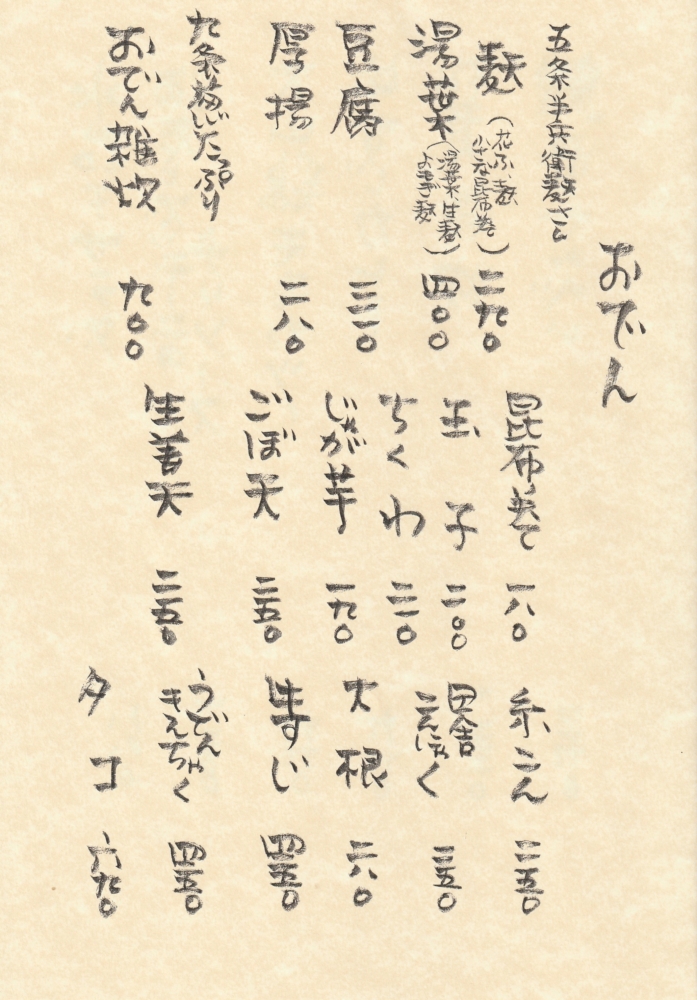 おでん
五条半兵衛麩さん
麩(花ふ、麩
小さな昆布巻)二九〇
湯葉(湯葉、生麩
よもぎ麩)四〇〇
豆腐 三一〇
厚揚 二八〇
九条葱がたっぷり
おでん雑炊 九〇〇
昆布巻て 一八〇
玉子 二〇〇
ちくわ 二一〇
じゃが芋 一九〇
ごぼ天 二五〇
生姜天 二五〇
糸こん 二五〇
田舎
こんにゃく 二五〇
大根 二八〇
牛すじ 四五〇
うどん
きんちゃく 四五〇
タコ 六九〇